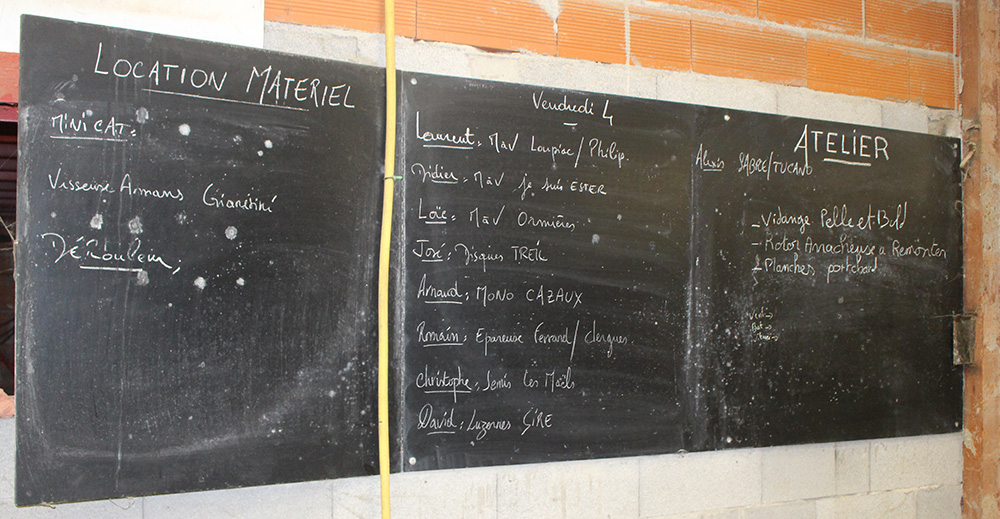 LOCATION MATERIEL
MINICAT:
Visseuse Armans Gianetini
DÉRouleur,
Vendredi 4
Laurent: MàV Loupiac/Philip.
Didier: MàV je suis ESTER
Loïc: MàV Ormières
José: Disques TREIL
Arnaud: MONO CAZAUX
Romain: Epareuse Ferrand/Clergues.
Christophe: Semis les Maëls
David: Luzernes GIRE
ATELIER
Alexis SABRE/TUCANO
- Vidange Pelle et Bull
- Rotor Arracheuse a Remonter
- Planches portchard